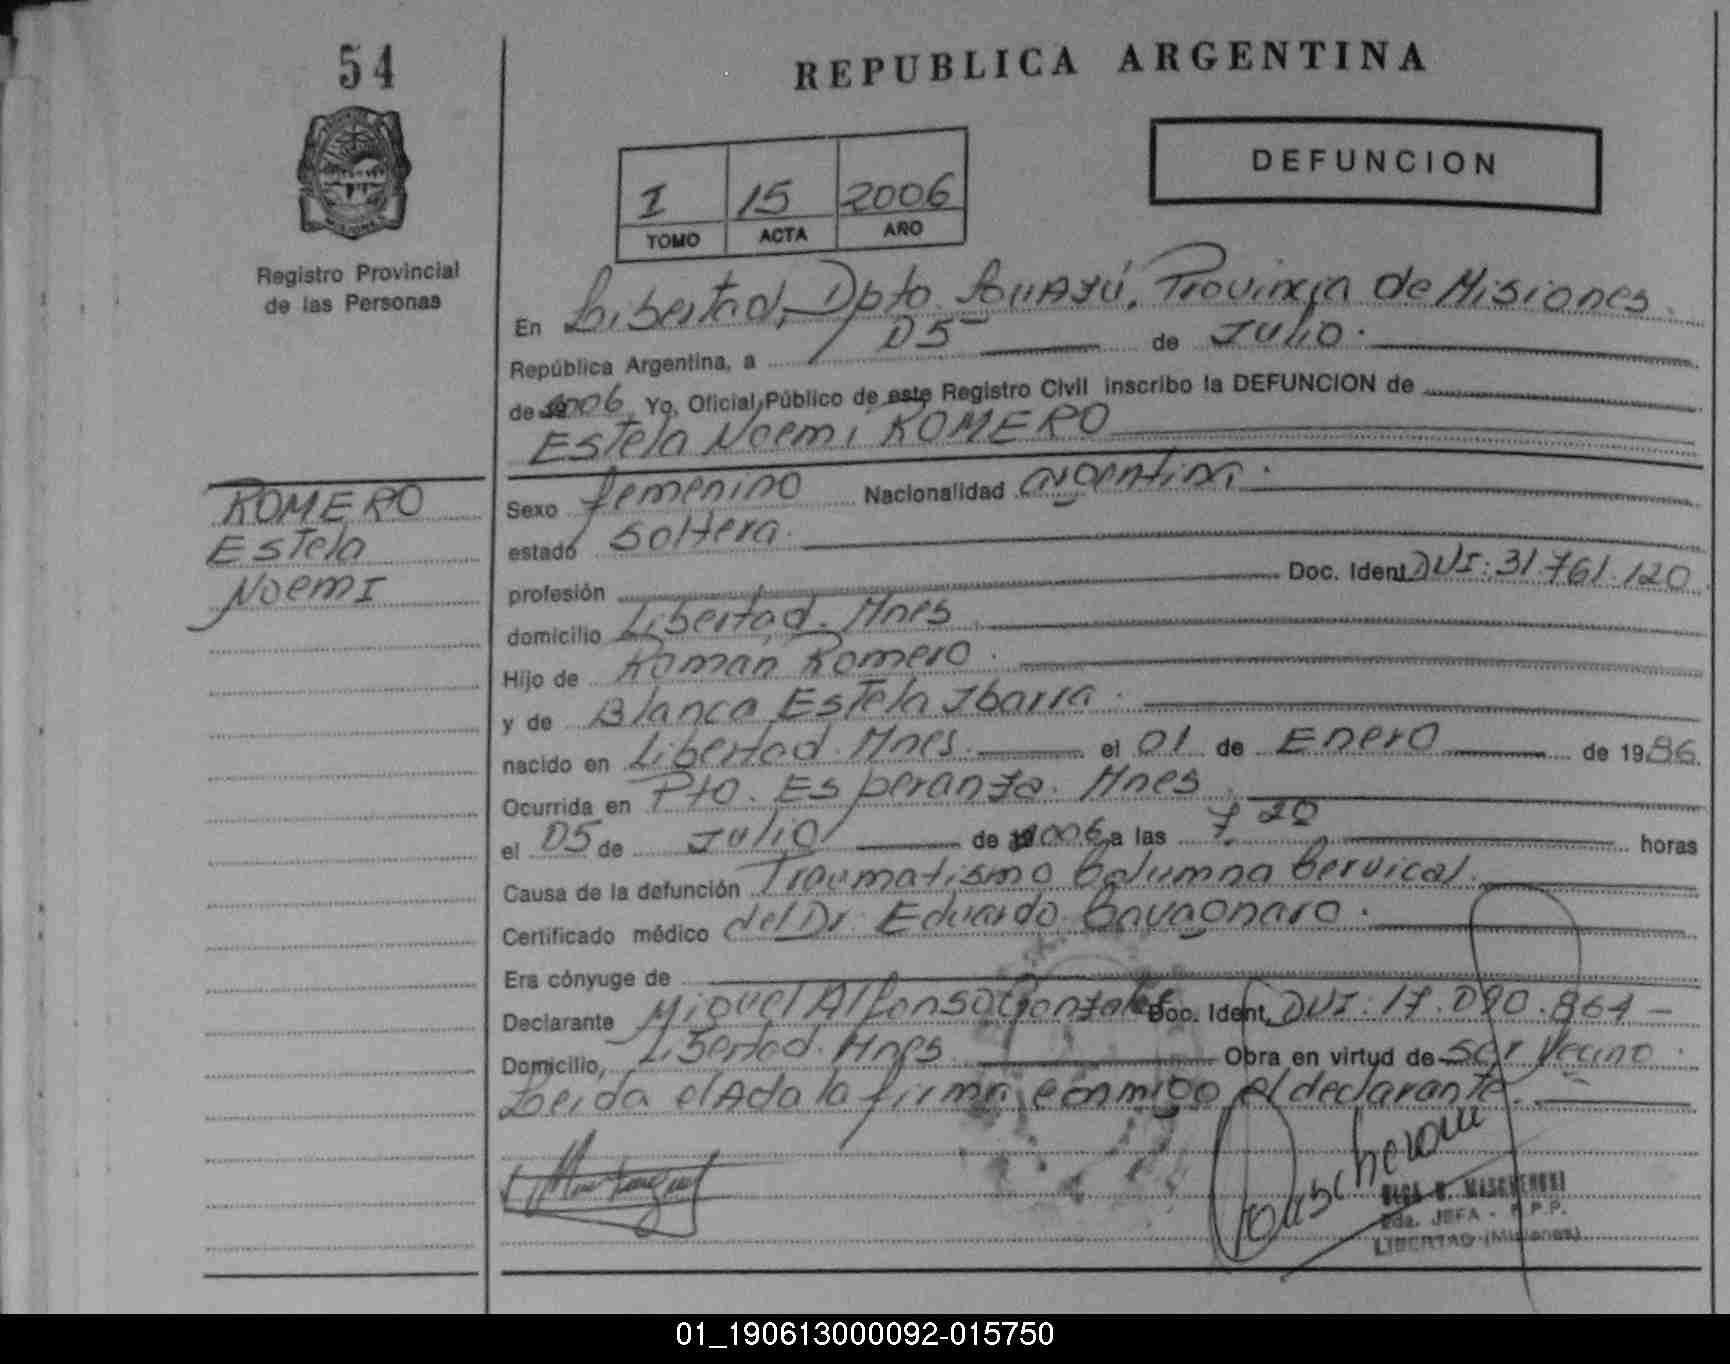 54
REPUBLICA ARGENTINA
DEFUNCION
I 15 2006
TOMO ACTA AÑO
Registro Provincial
de las Personas
En Libertad, Dpto. Iguazú, Provincia de Misiones.
República Argentina, a 05 de Julio.
de 2006, Yo, Oficial Público de este Registro Civil inscribo la DEFUNCION de
Estela Noemi ROMERO
ROMERO
Estela
Noemi
Sexo femenino Nacionalidad argentina.
estado soltera.
profesión Doc. Ident. DNI: 31.761.120
domicilio Libertad. Mnes
Hijo de Román Romero.
y de Blanca Estela Ibarra.
nacido en Libertad. Mnes. el 01 de Enero de 1986.
Ocurrida en Pto. Esperanza. Mnes
el 05 de Julio de 2006 a las 7.20 horas
Causa de la defunción Traumatismo Columna Cervical.
Certificado médico del Dr. Eduardo Cavagnaro.
Era cónyuge de
Declarante Miguel Alfonso Gonzalez Doc. Ident. DNI: 17.090.864 -
Domicilio, Libertad. Mnes. Obra en virtud de ser Vecino.
Leida el Acta la firma conmigo el declarante.
OLGA B. MASCHERONI
Eda. JEFA - R.P.P.
LIBERTAD (Misiones)
01_190613000092-015750